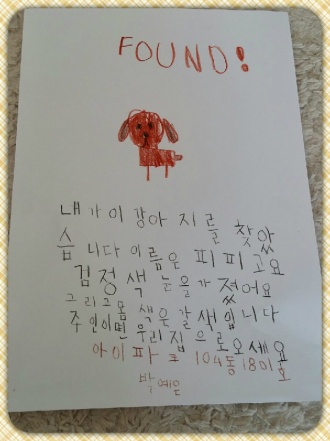 FOUND!
내가이강아지를 찾았
습니다 이름은 피피고요
검정색 눈을가졌어요
그리고몸색은갈색입니다
주인이면우리집으로오세요
아이파크 104동1801호
박예은